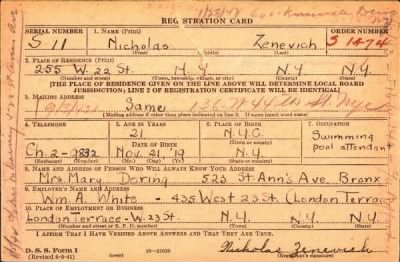 REGISTRATION CARD
SERIAL NUMBER 1. NAME (Print) ORDER NUMBER
S 11 Nicholas Zenevich S 1474
(First) (Middle) (Last)
2. PLACE OF RESIDENCE (Print)
255 W. 22 St. N.Y. N.Y.
(Number and street) (Town, township, village, or city) (County) (State)
[THE PLACE OF RESIDENCE GIVEN ON THE LINE ABOVE WILL DETERMINE LOCAL BOARD
JURISDICTION; LINE 2 OF REGISTRATION CERTIFICATE WILL BE IDENTICAL]
3. MAILING ADDRESS
Same
[Mailing address if other than place indicated on line 2. If same insert word same]
4. TELEPHONE 5. AGE IN YEARS 6. PLACE OF BIRTH 7. OCCUPATION
21 N.Y.C. Swimming
pool attendant
DATE OF BIRTH
Ch-2-9832 Nov. 21, '19 N.Y.
(Exchange) (Number) (Mo.) (Day) (Yr.) (State or country)
8. NAME AND ADDRESS OF PERSON WHO WILL ALWAYS KNOW YOUR ADDRESS
Mrs. Mary Doring 523 St Ann's Ave Bronx
9. EMPLOYER'S NAME AND ADDRESS
Wm. A. White - 435 West 23 St. (London Terrace)
10. PLACE OF EMPLOYMENT OR BUSINESS
London Terrace - W. 23 St. N.Y. N.Y.
(Number and street or R. F. D. number) (Town) (County) (State)
I AFFIRM THAT I HAVE VERIFIED ABOVE ANSWERS AND THAT THEY ARE TRUE.
D. S. S. Form 1
(over) Nicholas Zenevich